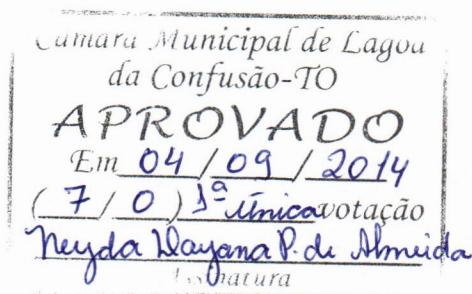 Câmara Municipal de Lagoa
da Confusão-TO
APROVADO
Em 04 / 09 / 2014
( 7 / 0 ) 1ª Única votação
Neyda Dayana P. de Almeida
Assinatura